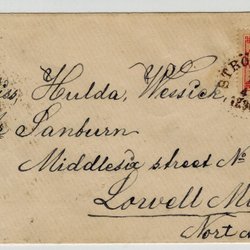 Hulda, Wessick,
Sanburn
Middlesix street No
Lowell M
Nort
STRÖ